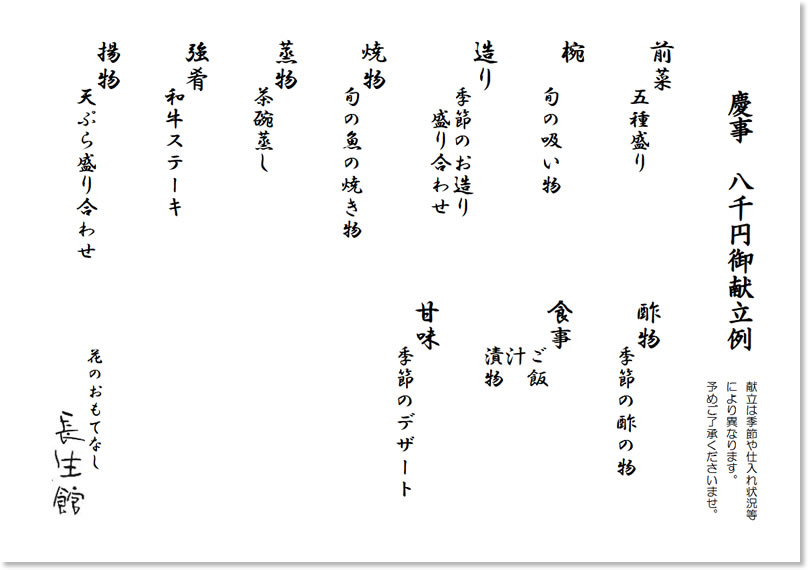 慶事　八千円御献立例
献立は季節や仕入れ状況等
により異なります。
予めご了承くださいませ。
前菜
五種盛り
椀
旬の吸い物
造り
季節のお造り
盛り合わせ
焼物
旬の魚の焼き物
蒸物
茶碗蒸し
強肴
和牛ステーキ
揚物
天ぷら盛り合わせ
酢物
季節の酢の物
食事
ご飯
汁
漬物
甘味
季節のデザート
花のおもてなし
長生館